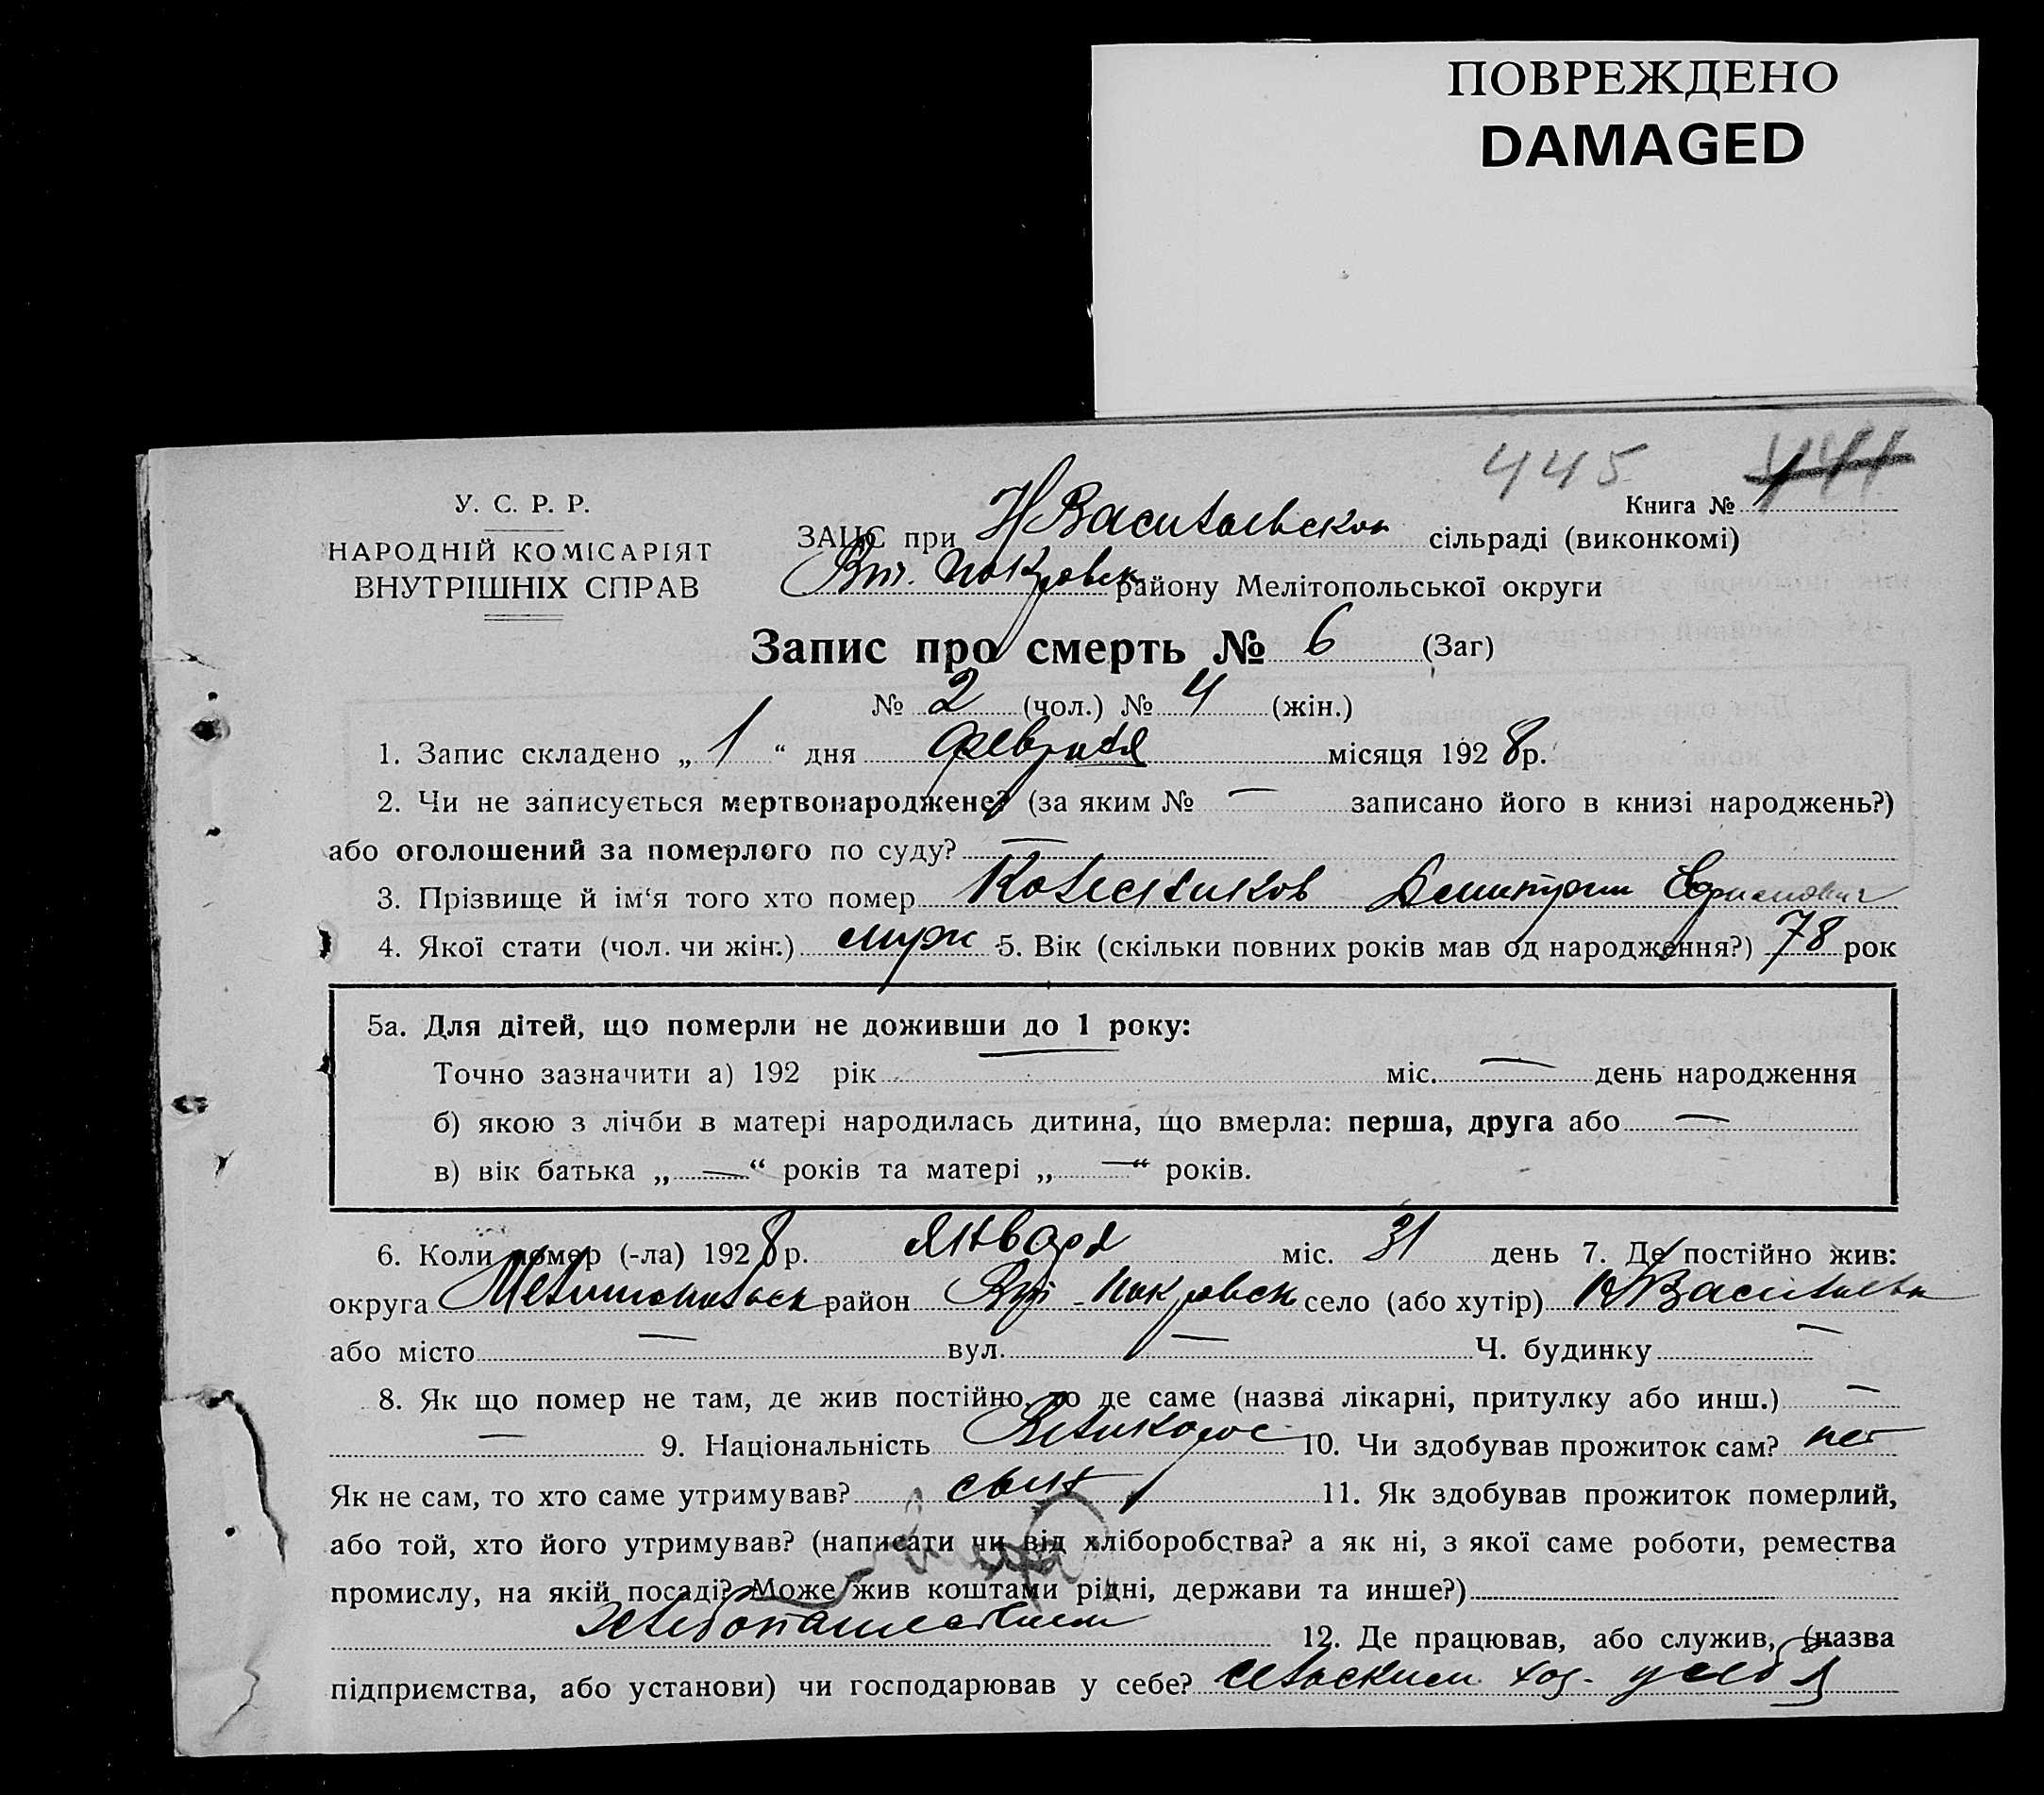 ПОВРЕЖДЕНО
DAMAGED
445
У. С. Р. Р.
Книга № 1
НАРОДНІЙ КОМІСАРІЯТ
ВНУТРІШНІХ СПРАВ
ЗАЦС при Н Васильевском сільраді (виконкомі)
Вт. Покровск району Мелітопольської округи
Запис про смерть № 6 (Заг)
№ 2 (чол.) № 4 (жін.)
1. Запис складено „ 1 “ дня февраля місяця 1928 р.
2. Чи не записується мертвонароджене? (за яким № — записано його в книзі народжень?)
або оголошений за померлого по суду? —
3. Прізвище й ім‘я того хто помер Колесников Дмитрий
4. Якої статі (чол. чи жін.) муж 5. Вік (скільки повних років мав од народження?) 78 рок
5а. Для дітей, що померли не доживши до 1 року:
Точно зазначити а) 192 рік міс. — день народження
б) якою з лічби в матері народилась дитина, що вмерла: перша, друга або —
в) вік батька „ — “ років та матері „ — “ років.
6. Коли помер (-ла) 1928 р. Января міс. 31 день 7. Де постійно жив:
округа Мелитопольск район Вт-Покровск село (або хутір) Н Васильевк
або місто — вул. — Ч. будинку —
8. Як що помер не там, де жив постійно, то де саме (назва лікарні, притулку або инш.) —
— 9. Національність Великорос 10. Чи здобував прожиток сам? нет
Як не сам, то хто саме утримував? сын 11. Як здобував прожиток померлий,
або той, хто його утримував? (написати чи від хліборобства? а як ні, з якої саме роботи, ремества
промислу, на якій посаді? Може жив коштами рідні, держави та инше?)
хлебопашеством 12. Де працював, або служив, (назва
підприємства, або установи) чи господарював у себе? сельским хоз. у себя